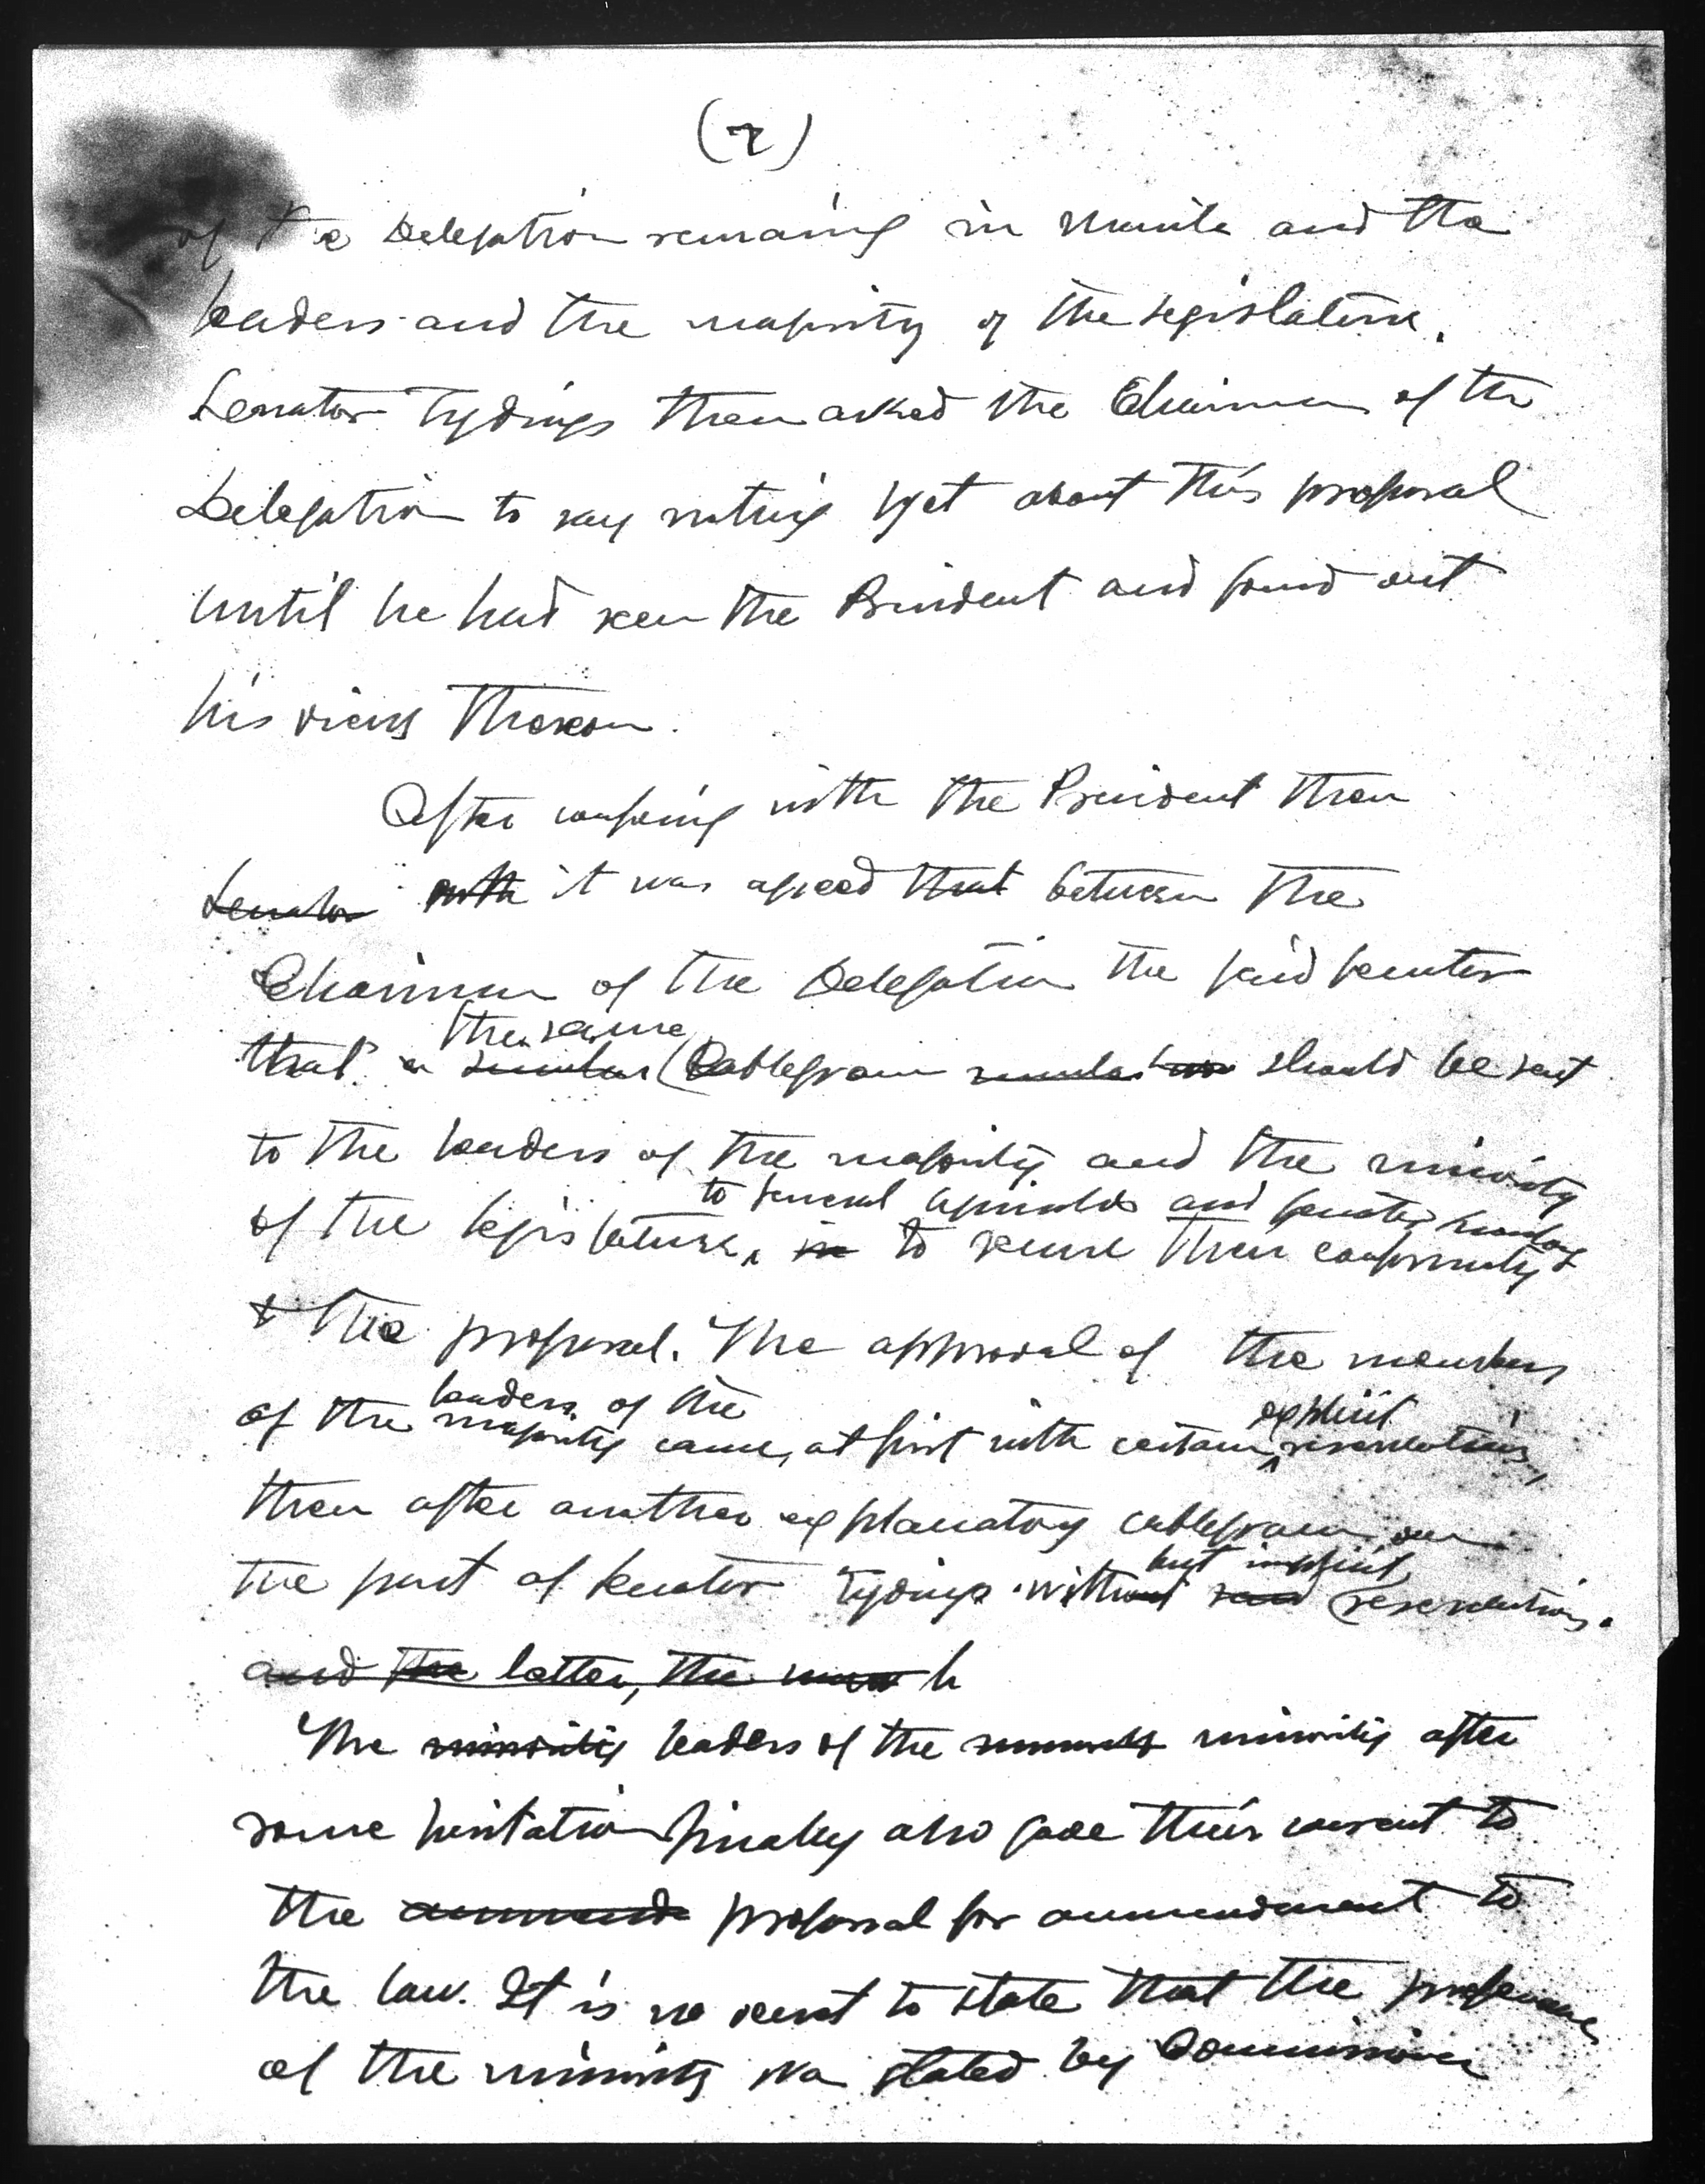 (7)
of the Delegation remaining in Manila and the
leaders and the majority of the Legislature.
Senator Tydings then asked the Chairman of the
Delegation to say nothing yet about this proposal
until he had seen the President and found out
his views thereon.
After confering with the President then
Senator with it was agreed that between the
Chairman of the Delegation the said Senator
the same
that a similar Cablegram should be sent
to the leaders of the majority and the minority
to General Aguinaldo and Senator
of the legislature, in to secure their conformity
to the proposal. The approval of the members
leaders of the explicit
of the majority came, at first with certain reservations,
then after another explanatory cablegram on
but implicit
the part of Senator Tydings without reservations.
and the latter, the h
The minority leaders of the minority after
some hesitation finally also gave their consent to
the ammende proposal for ammendment to
the law. It is no secret to state that the preference
of the minority was stated by Commissioner